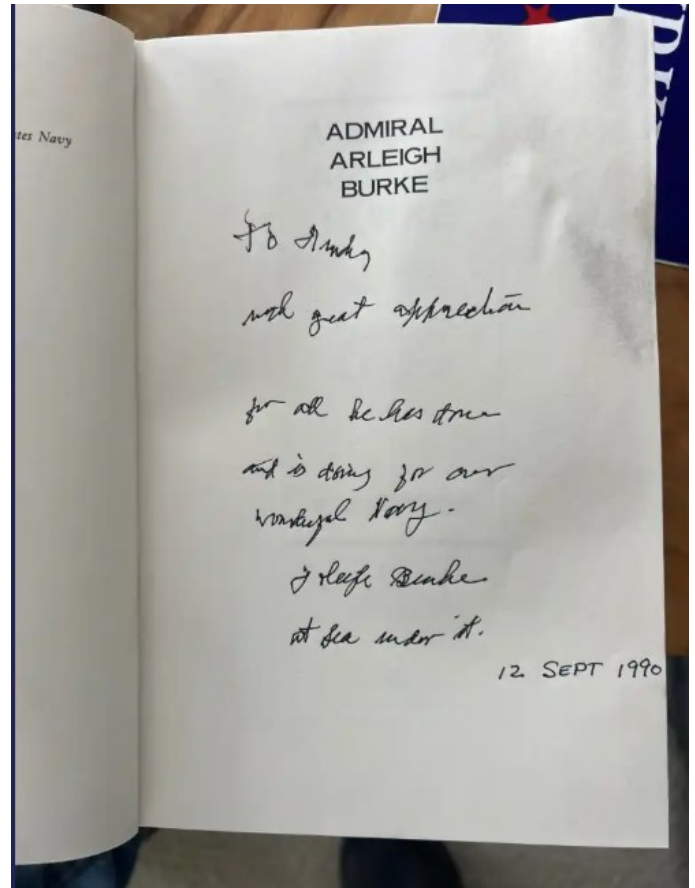 tes Navy
ADMIRAL
ARLEIGH
BURKE
To
with great appreciation
for all he has done
and is doing for our
wonderful Navy.
Burke
at sea under it.
12 SEPT 1990